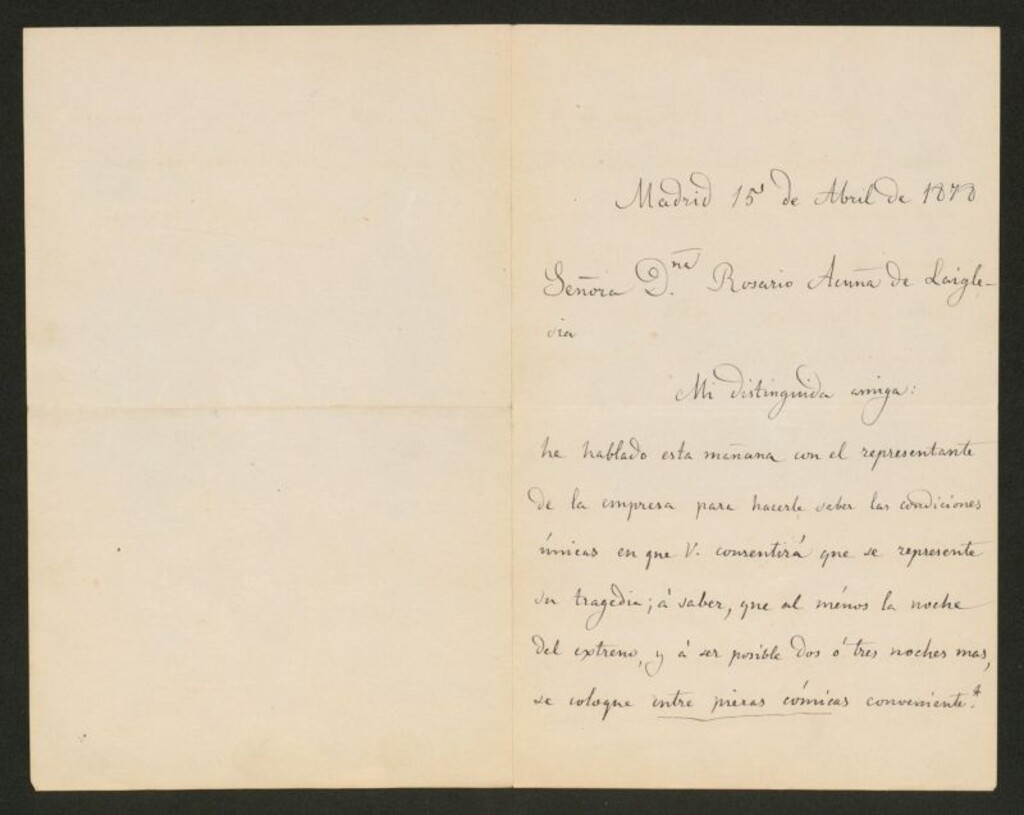 Madrid 15 de Abril de 1878
Señora D.ña Rosario Acuña de Laigle-
sia
Mi distinguida amiga:
he hablado esta mañana con el representante
de la empresa para hacerle saber las condiciones
únicas en que V. consentirá que se represente
su tragedia; á saber, que al ménos la noche
del extreno, y á ser posible dos ó tres noches mas,
se coloque entre piezas cómicas conveniente.s